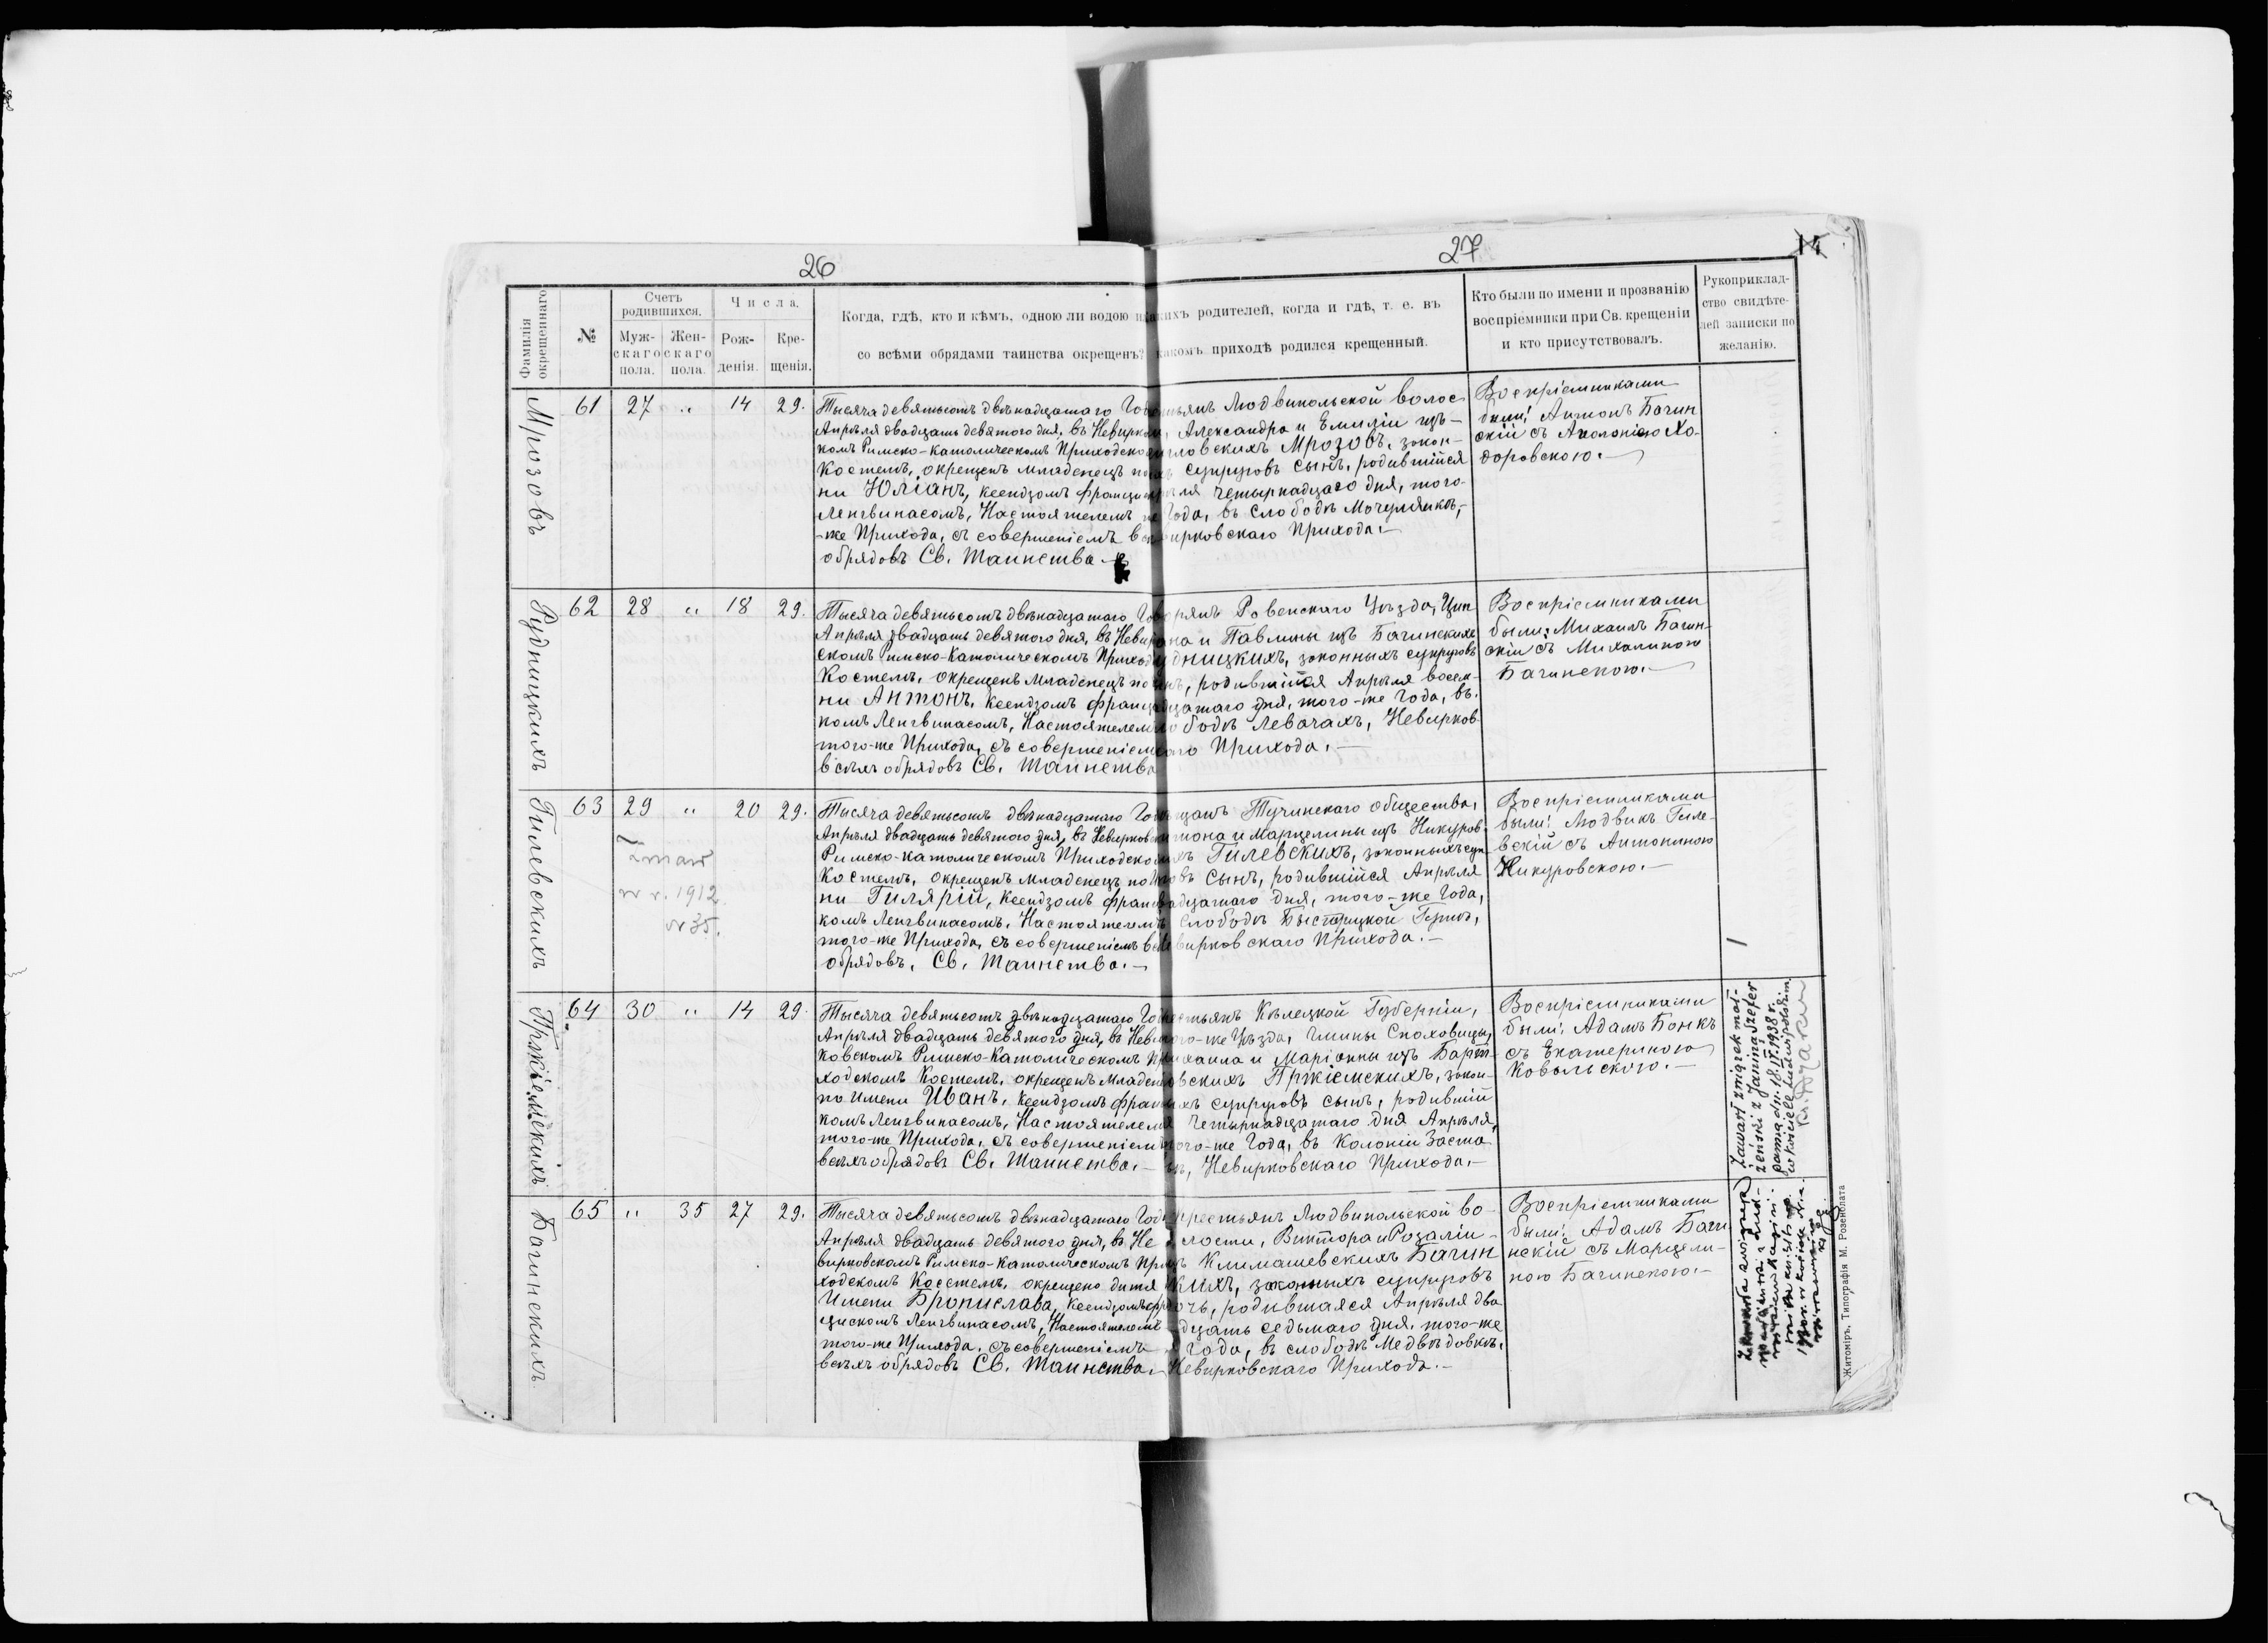 26
27
14
Фамилія окрещеннаго
№
Счетъ родившихся.
Муж-скаго пола.
Жен-скаго пола.
Числа.
Рож-денія.
Кре-щенія.
Когда, гдѣ, кто и кѣмъ, одною ли водою и
какихъ родителей, когда и гдѣ, т. е. въ
со всѣми обрядами таинства окрещенъ?
какомъ приходѣ родился крещенный.
Кто были по имени и прозванію
воспріемники при Св. крещеніи
и кто присутствовалъ.
Рукоприклад-
ство свидѣте-
лей записки по
желанію.
Мрозовъ
61 27 " 14 29.
Тысяча девятьсотъ двѣнадцатаго
Апрѣля двадцать девятого дня, въ
комъ Римско-Католическомъ
Костелѣ, окрещенъ младенецъ
ни Юліанъ, Ксендзомъ
Ленгвинасомъ, Настоятелемъ
-же Прихода, съ совершеніемъ
обрядовъ Св. Таинства.
Людвипольской волос
Александра и Емиліи изъ-
Мрозовъ, закон-
супруговъ сынъ, родившійся
четырнадцаго дня, того-
Года, въ слободѣ Мочулянкѣ,-
Прихода.-
Воспріемниками
были: Антонъ Багин
скій съ Аполоніею Хо-
доровскою.-
Рудницкихъ
62 28 " 18 29.
Тысяча девятьсотъ двѣнадцатаго
Апрѣля двадцать девятого дня, въ
скомъ Римско-Католическомъ
Костелѣ, окрещенъ Младенецъ
ни Антонъ, Ксендзомъ
комъ Ленгвинасомъ, Настоятелемъ
того-же Прихода, съ совершеніемъ
всѣхъ обрядовъ Св. Таинства
Ровенскаго Уѣзда,
и Павлины изъ Багинскихъ
законныхъ супруговъ
родившійся Апрѣля восем-
дня, того-же Года, въ
Левачахъ, Невирков-
Прихода.-
Воспріемниками
были: Михаилъ Багин-
скій съ Михалиною
Багинскою.-
Гилевскихъ
63 29 " 20 29.
zmarł
w r. 1912
N 35.
Тысяча девятьсотъ двѣнадцатаго
Апрѣля двадцать девятого дня, въ
Римско-католическомъ
Костелѣ, окрещенъ младенецъ
ни Гилярій, Ксендзомъ
комъ Ленгвинасомъ, Настоятелемъ
того-же Прихода, съ совершеніемъ
обрядовъ, Св. Таинства.-
Тучинскаго общества,
и Марцелины изъ Никуров-
Гилевскихъ, законныхъ суп-
сынъ, родившійся Апрѣля
дня, того-же Года,
Слободѣ Быстрицкой
Прихода.-
Воспріемниками
были: Людвикъ Гиле-
вскій съ Антониною
Никуровскою.-
Пржіемскихъ
64 30 " 14 29.
Тысяча девятьсотъ двѣнадцатаго
Апрѣля двадцать девятого дня, въ
ковскомъ Римско-Католическомъ
ходскомъ Костелѣ, окрещенъ
по имени Иванъ, Ксендзомъ
комъ Ленгвинасомъ, Настоятелемъ
того-же Прихода, съ совершеніемъ
всѣхъ обрядовъ Св. Таинства.-
Кѣлецкой Губерніи,
Уѣзда, Гмины
и Маріанны изъ Барт-
Пржіемскихъ, закон-
супруговъ сынъ, родившій
Четырнадцатаго дня Апрѣля,
Года, въ Колоніи Заста
Невирковскаго Прихода.-
Воспріемниками
были: Адамъ Бонкъ
съ Екатериною
Ковальскою.-
Zawarł związek mał-
żeński z Janiną Szefer
panną dn. 18.IV.1938 r.
w kościele ludwipolskim
Багинскихъ
65 " 35 27 29.
Тысяча девятьсотъ двѣнадцатаго
Апрѣля двадцать девятого дня, въ Не
вирковскомъ Римско-Католическомъ
ходскомъ Костелѣ, окрещено дитя
Имени Бронислава,
цискомъ Ленгвинасомъ, Настоятелемъ
того-же Прихода, съ совершеніемъ
всѣхъ обрядовъ Св. Таинства.
Крестьянъ Людвипольской во-
лости, Виктора и Розаліи-
Климашевскихъ Багин
законныхъ супруговъ
родившаяся Апрѣля два
дцать седьмаго дня, того-же
Года, въ слободѣ Медвѣдовкѣ,
Невирковскаго Прихода.-
Воспріемниками
были: Адамъ Баги
нскій съ Марцели-
ною Багинскою.-
Житоміръ, Типографія М. Розенблата